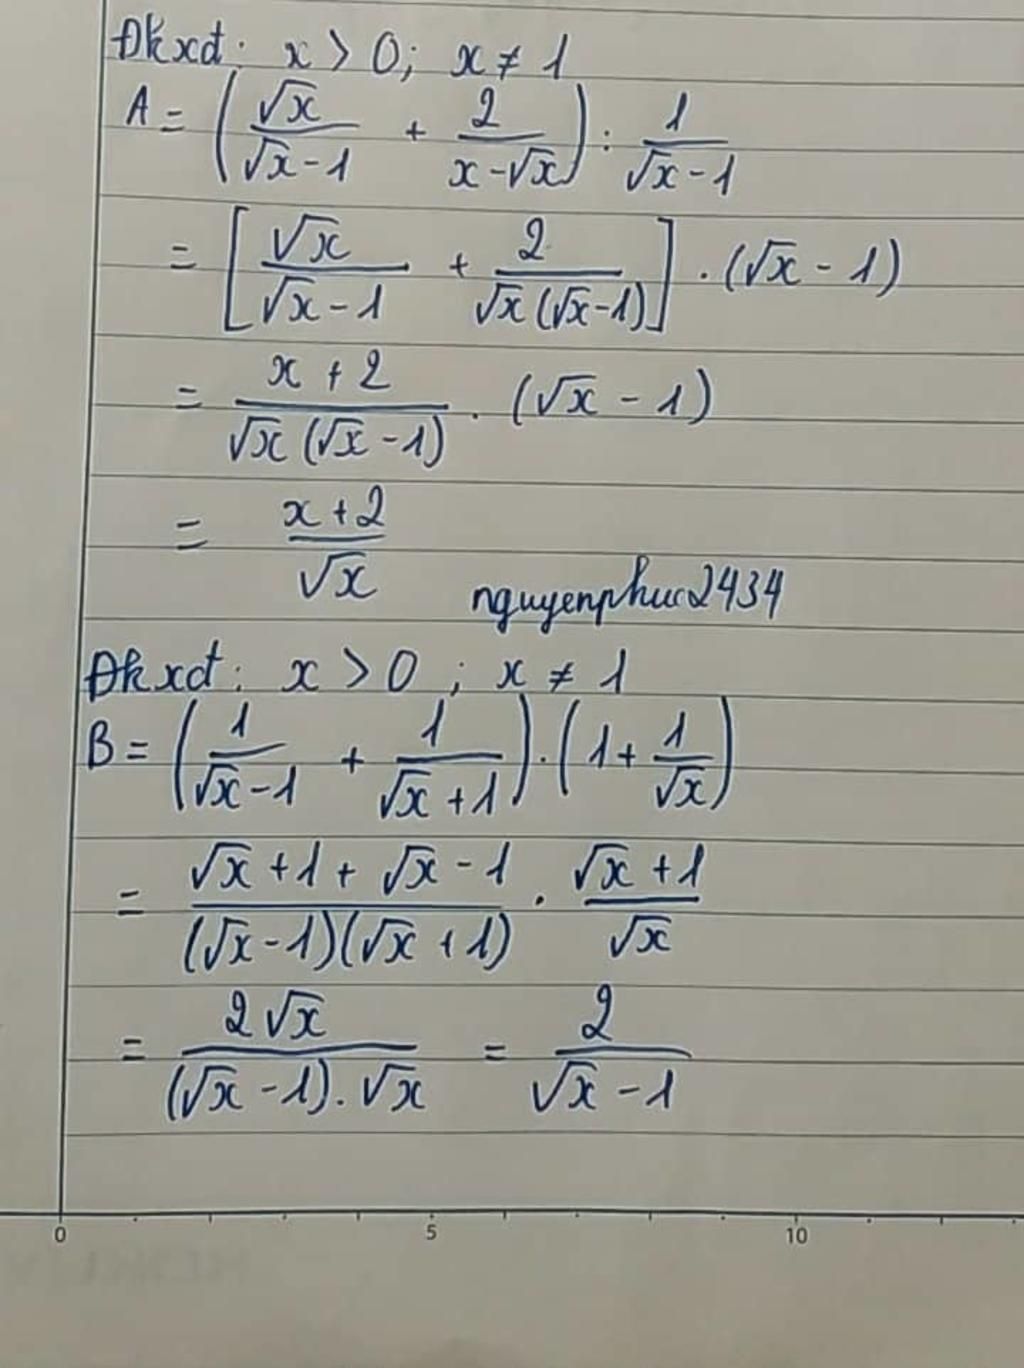 Đkxđ: x > 0; x ≠ 1
A = (√x/(√x-1) + 2/(x-√x)) : 1/(√x-1)
= [√x/(√x-1) + 2/(√x(√x-1))] . (√x - 1)
= (x+2)/(√x(√x-1)) . (√x - 1)
= (x+2)/√x
nguyenphuc2434
Đkxđ: x > 0 ; x ≠ 1
B = (1/(√x-1) + 1/(√x+1)) . (1 + 1/√x)
= (√x+1+√x-1)/((√x-1)(√x+1)) . (√x+1)/√x
= 2√x/((√x-1).√x) = 2/(√x-1)
0 5 10